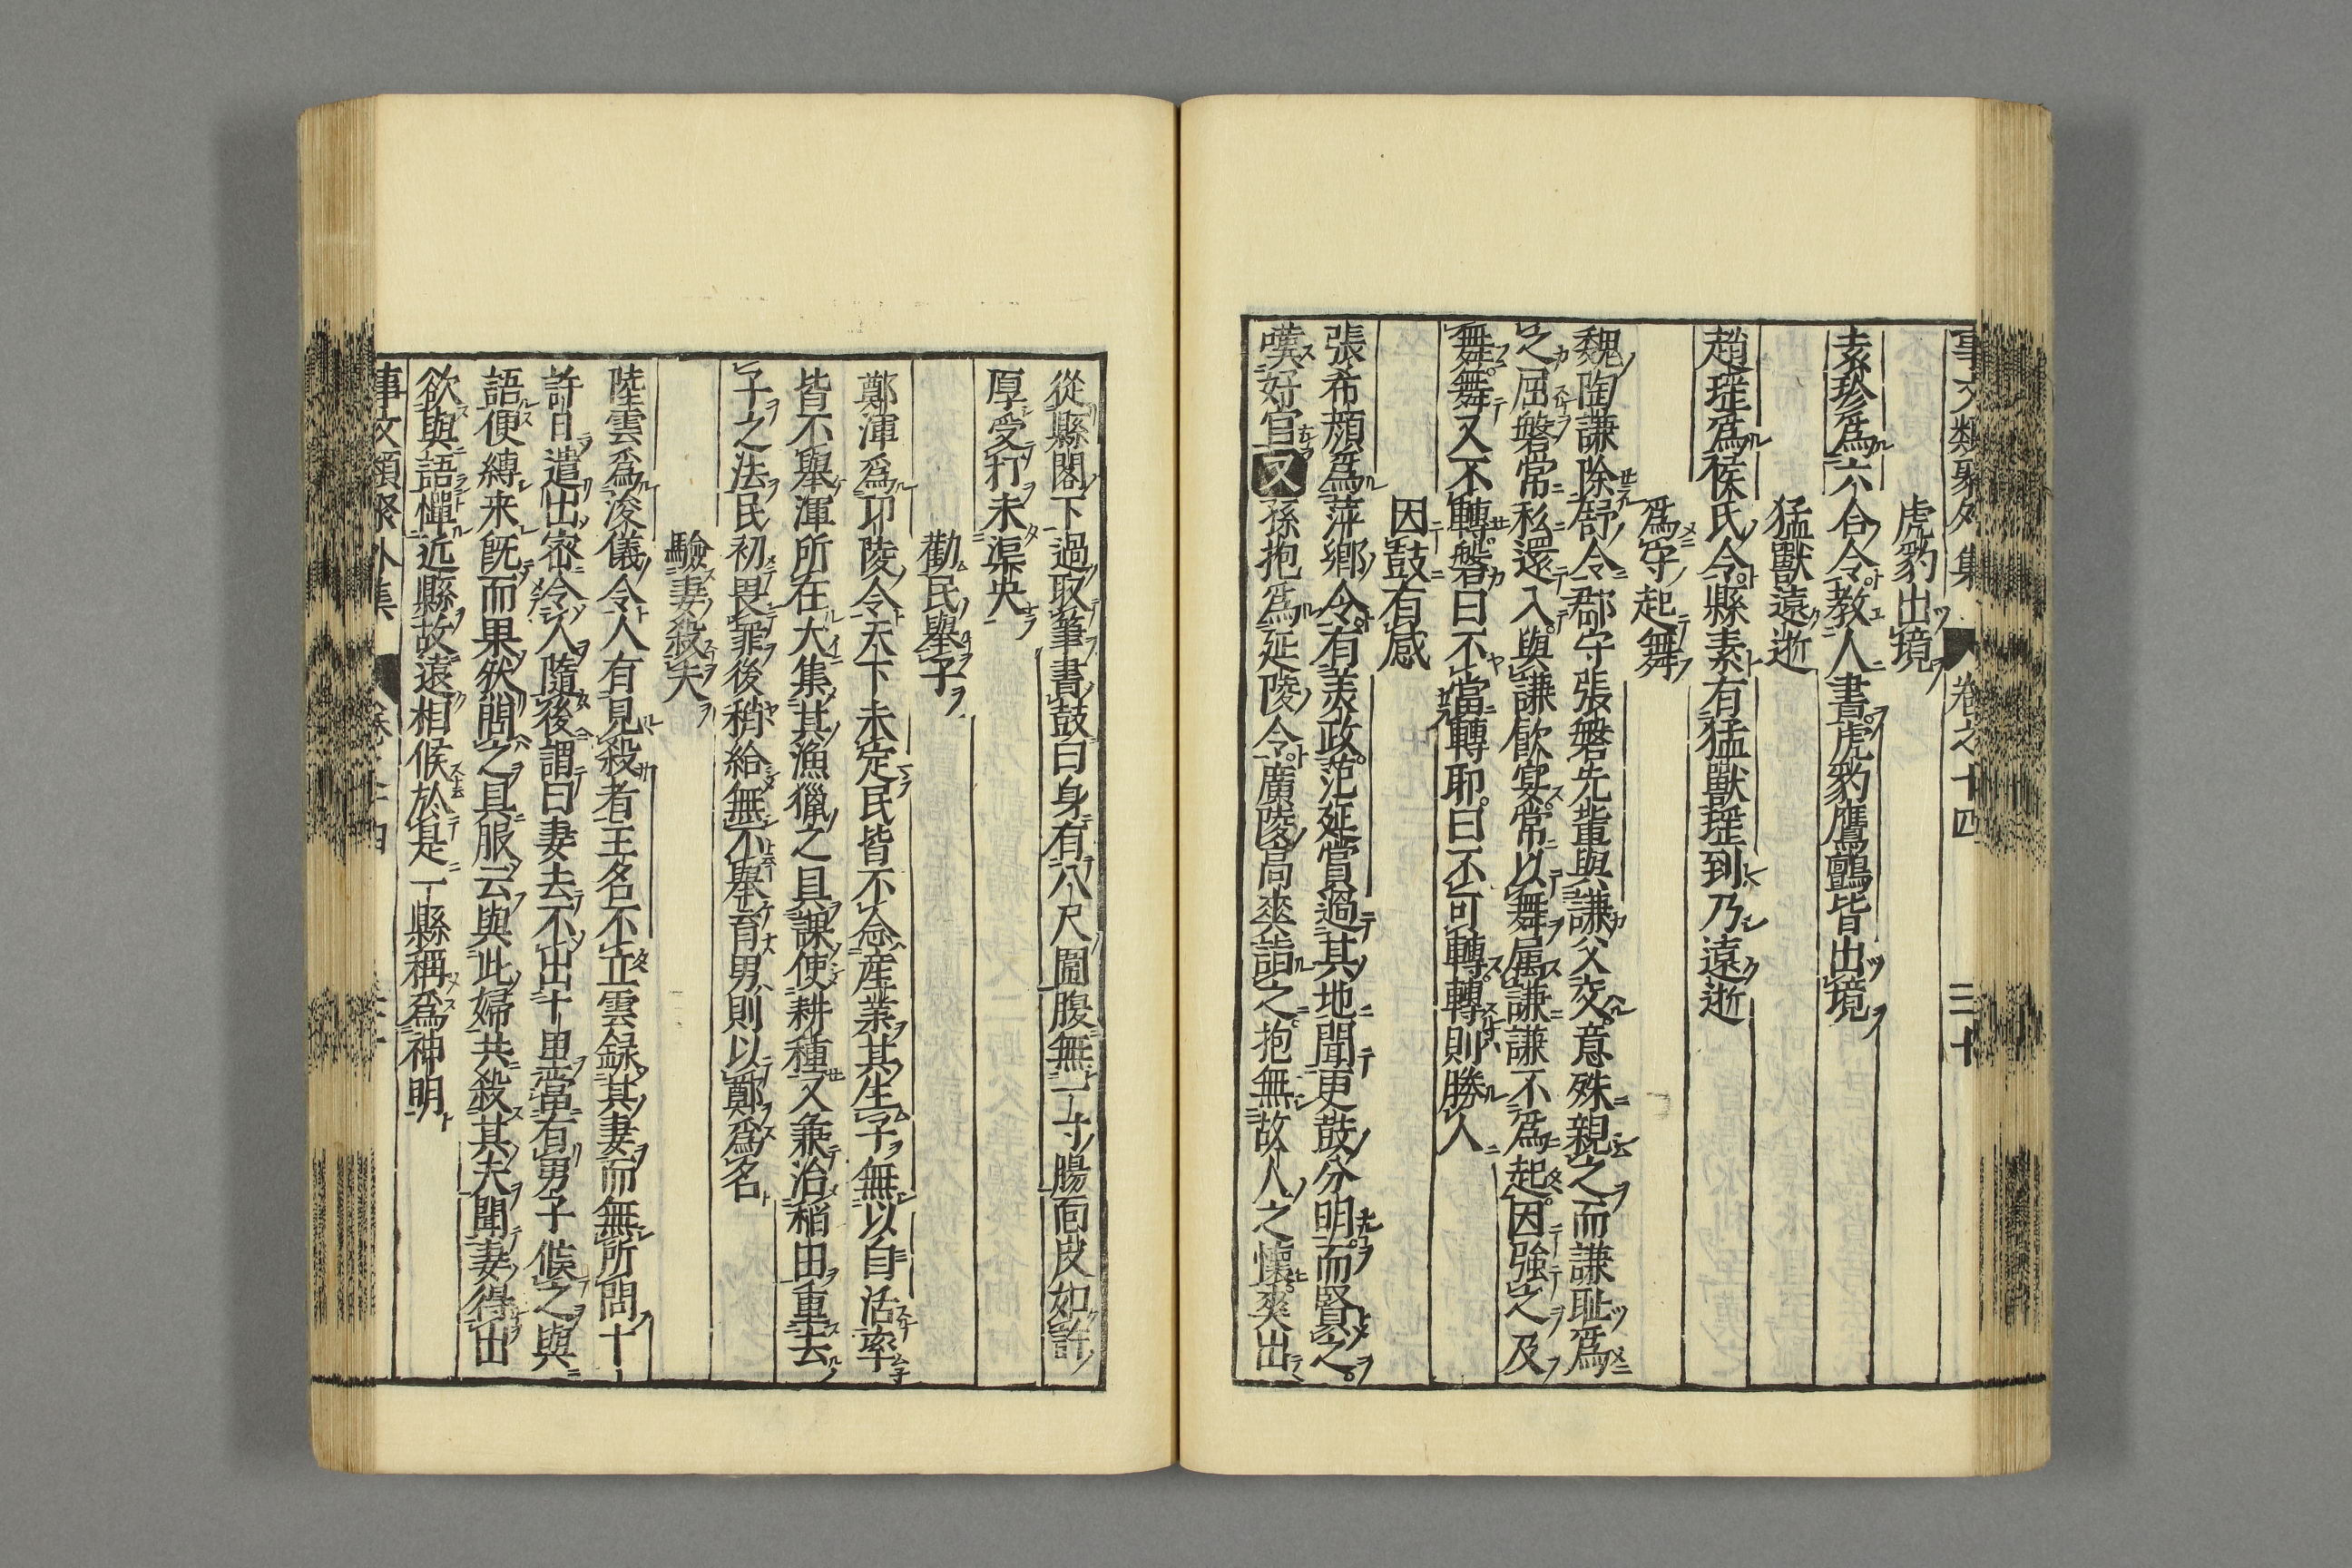 事文類聚外集 卷之十四 三十
虎豹出境
素珍爲六合令教人書虎豹鷹鸇皆出境
猛獸遠逝
趙瑶爲緱氏令縣素有猛獸瑶到乃遠逝
爲守起舞
魏陶謙除舒令郡守張磐先輩與謙父交意殊親之而謙耻爲
之屈磐常私還入與謙飮宴常以舞属謙謙不爲起因強之及
舞舞又不轉磐曰不當轉耶曰不可轉轉則勝人
因鼓有感
張希顔爲萍鄉令有美政范延賞過其地聞更鼓分明而賢之
嘆好官又孫抱爲延陵令廣陵高爽詣之抱無故人之懷爽出
從縣閣下過取筆書鼓曰身有八尺圍腹無一寸腸面皮如許
厚受打未渠央
勸民舉子
鄭渾爲邵陵令天下未定民皆不念産業其生子無以自活率
皆不舉渾所在大集其漁獵之具課使耕種又兼治稻由重去
子之法民初畏罪後稍給無不舉育男則以鄭爲名
驗妻殺夫
陸雲爲浚儀令人有見殺者主名不立雲録其妻而無所問十
許日遣出密令人隨後謂曰妻去不出十里當有男子候之與
語便縛来既而果然問之具服云與此婦共殺其夫聞妻得出
欲與語憚近縣故遠相候於是一縣稱爲神明
事文類聚外集